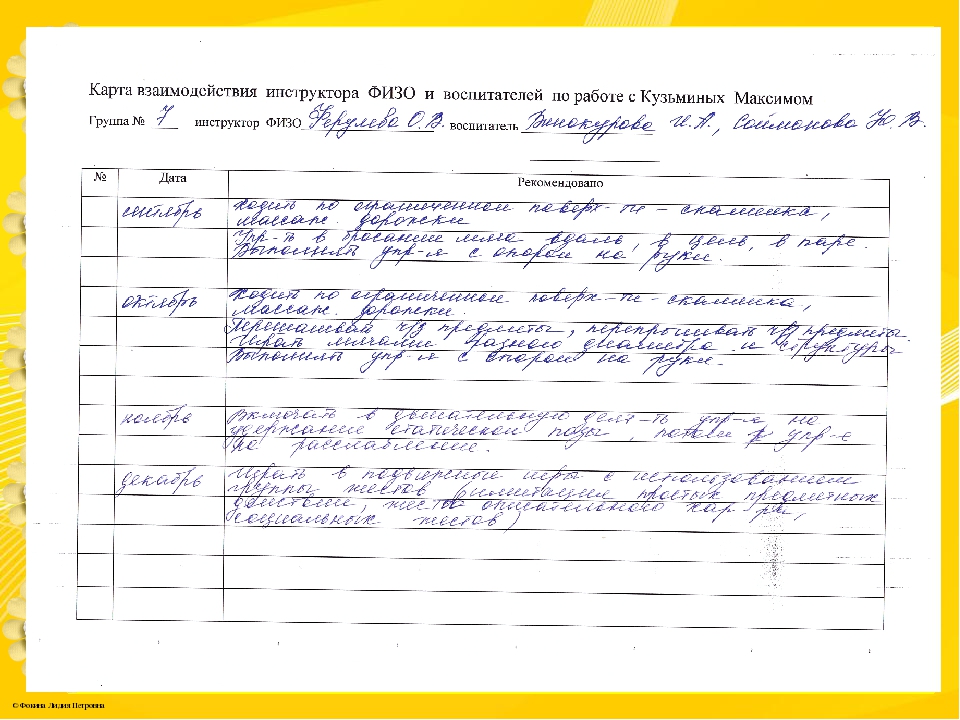 Карта взаимодействия инструктора ФИЗО и воспитателей по работе с Кузьминых Максимом
Группа № 7 инструктор ФИЗО Ферулева О.В. воспитатель Винокурова И.А., Соймонова Ю.В.
№ Дата Рекомендовано
сентябрь ходить по ограниченной поверх-ти - скамейка,
массаж. дорожки
Упр-ть в бросании мяча вдаль, в цель, в паре.
Выполнять упр-я с опорой на руки.
октябрь ходить по ограниченной поверх-ти - скамейка,
массаж. дорожки.
Перешагивать ч/з предметы, перепрыгивать ч/з предметы.
Играть мячами разного диаметра и структуры
Выполнять упр-я с опорой на руки.
ноябрь Включать в двигательную деят-ть упр-е на
удержание статической позы, потом упр-е
на расслабление.
декабрь Играть в подвижные игры с использованием
группы жестов (имитация простых предметных
действий, жесты описательного хар-ра,
социальных жестов)
© Фокина Лидия Петровна